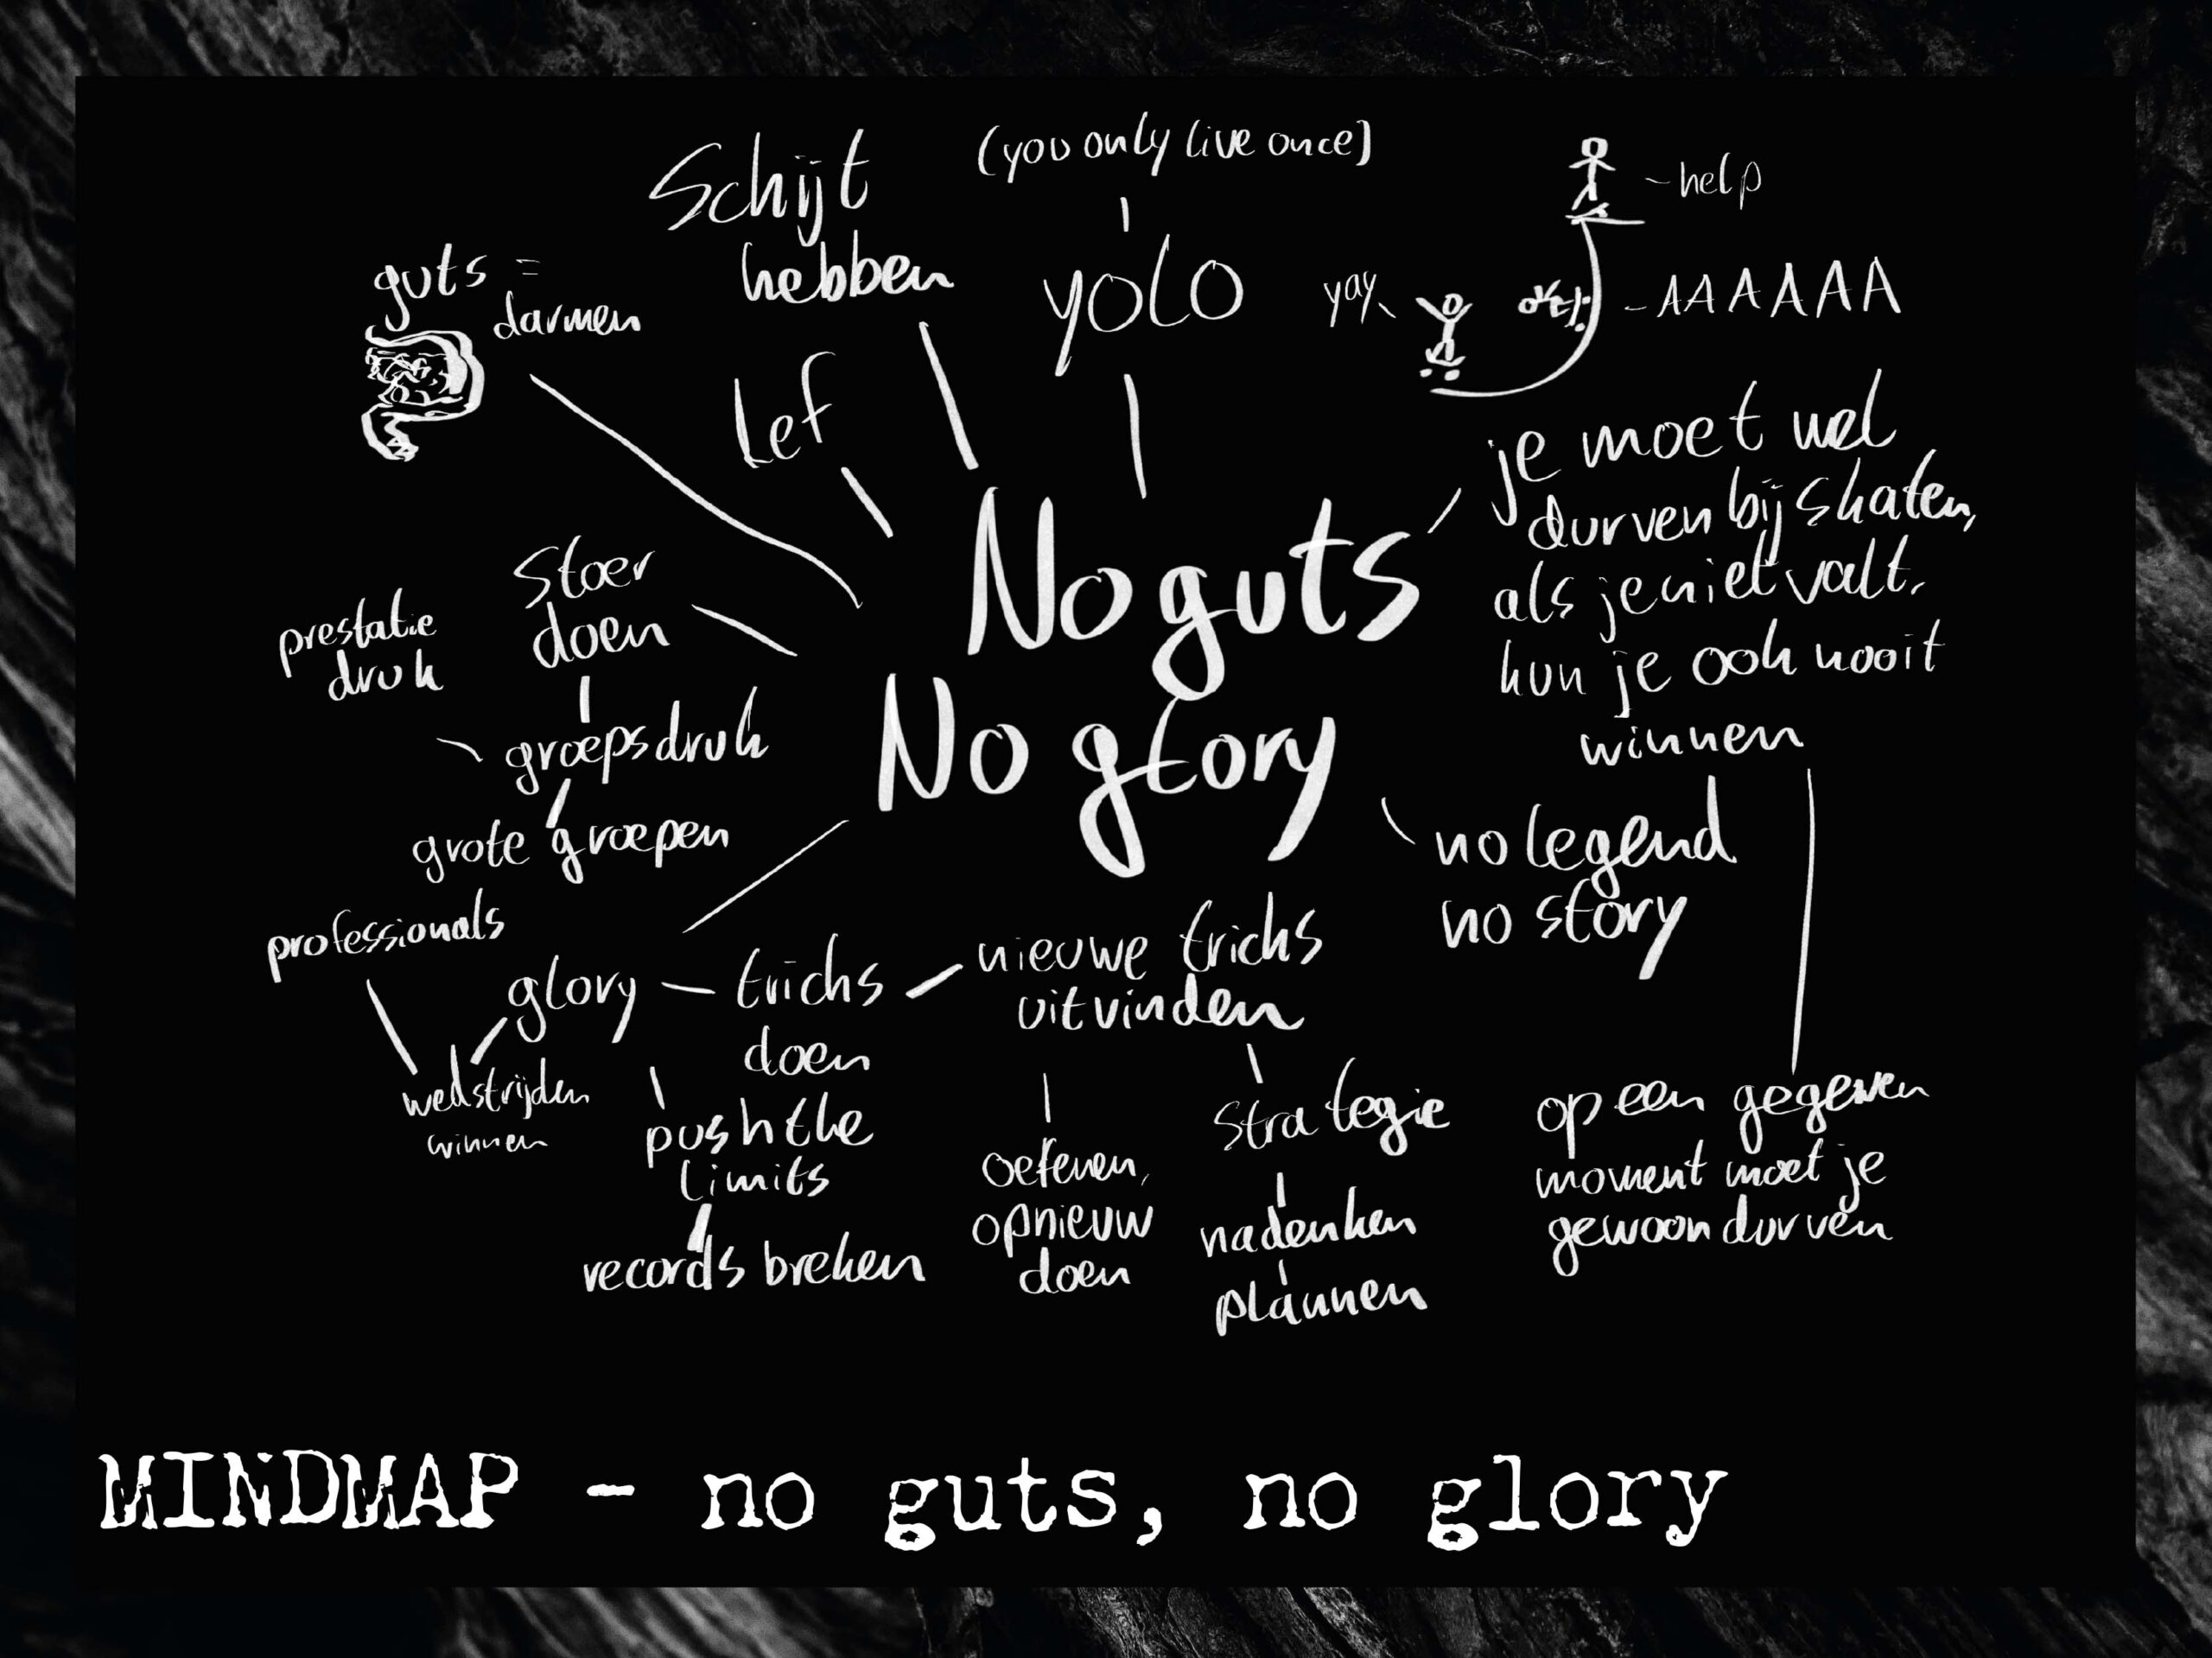 (you only live once)
Schijt
hebben
yolo
-help
yay
-AAAAAA
guts =
darmen
Lef
je moet wel
durven bij skaten,
als je niet valt.
kun je ook nooit
winnen
No guts
No glory
Stoer
doen
prestatie
druk
groepsdruk
grote groepen
no legend
no story
professionals
glory
tricks
doen
nieuwe tricks
uitvinden
wedstrijden
winnen
push the
limits
records breken
oefenen,
opnieuw
doen
strategie
nadenken
plannen
op een gegeven
moment moet je
gewoon durven
MINDMAP - no guts, no glory